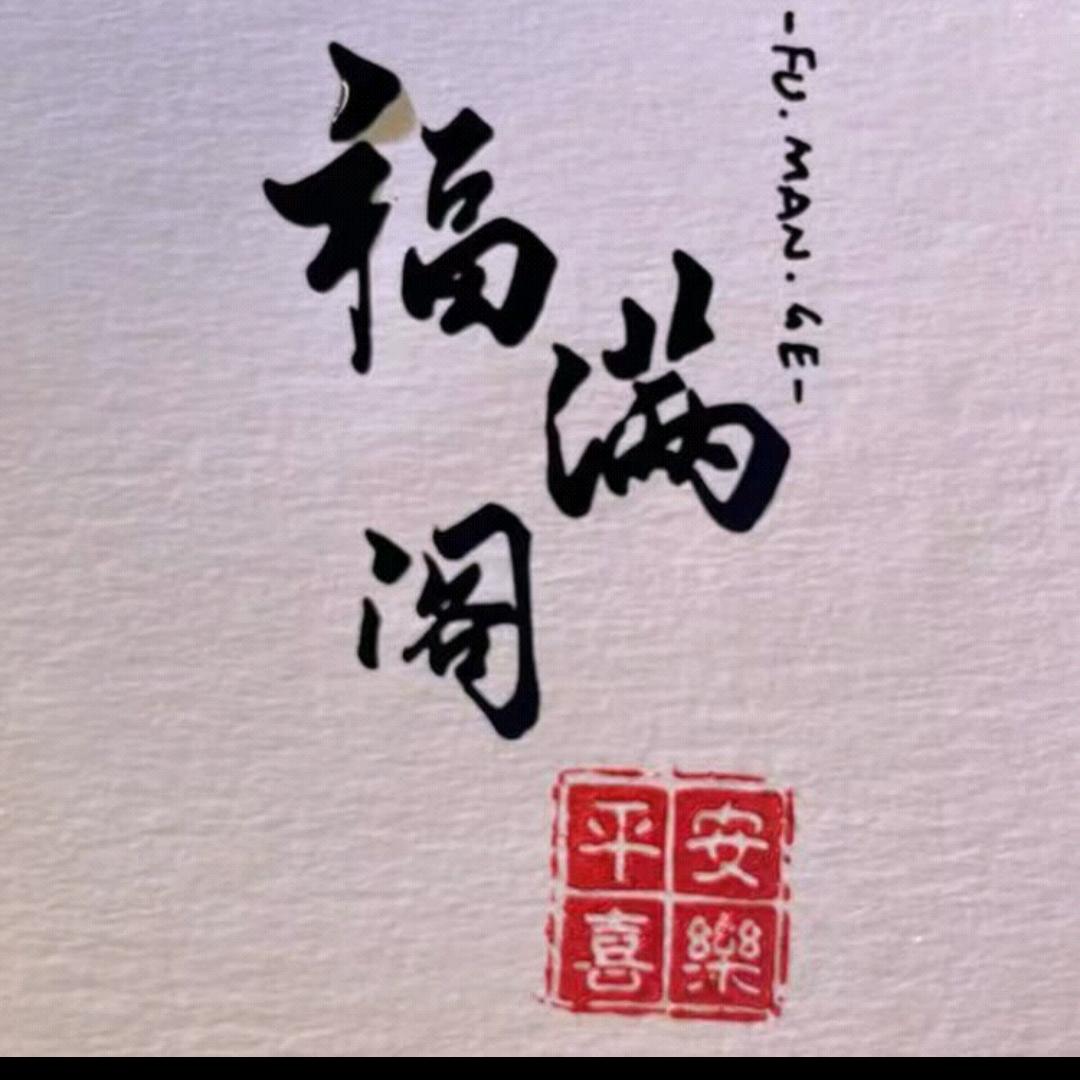 福满阁
-FU.MAN.GE-
平安
喜樂